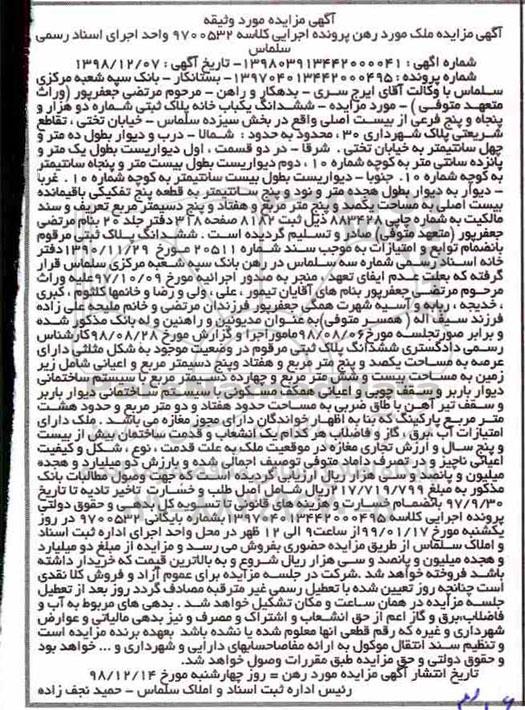 آگهی مزایده مورد وثیقه
آگهی مزایده ملک مورد رهن پرونده اجرایی کلاسه ۹۷۰۰۵۳۲ واحد اجرای اسناد رسمی
سلماس
شماره آگهی : ۱۳۹۸۰۳۹۱۳۴۴۲۰۰۰۰۴۱- تاریخ آگهی : ۱۳۹۸/۱۲/۰۷
شماره پرونده : ۱۳۹۷۰۴۰۱۳۴۴۲۰۰۰۴۹۵- بستانکار - بانک سپه شعبه مرکزی
سلماس با وکالت آقای ایرج سری - بدهکار و راهن - مرحوم مرتضی جعفرپور (وراث
متعهد متوفی) - مورد مزایده - ششدانگ یکباب خانه پلاک ثبتی شماره دو هزار و
پنجاه و پنج فرعی از بیست اصلی واقع در بخش سیزده سلماس - خیابان تختی ، تقاطع
شریعتی پلاک شهرداری ۳۰ ، محدود به حدود : شمالا - درب و دیوار بطول ده متر و
چهل سانتیمتر به خیابان تختی . شرقا - در دو قسمت ، اول دیواریست بطول یک متر و
پانزده سانتی متر به کوچه شماره ۱۰ ، دوم دیواریست بطول بیست متر و پنجاه سانتیمتر
به کوچه شماره ۱۰. جنوبا - دیواریست بطول بیست سانتیمتر به کوچه شماره ۱۰ . غربا
- دیوار به دیوار بطول هجده متر و نود و پنج سانتیمتر به قطعه پنج تفکیکی باقیمانده
بیست اصلی به مساحت یکصد و پنج متر مربع و هفتاد و پنج دسیمتر مربع تعریف و سند
مالکیت به شماره چاپی ۸۸۳۴۲۸ ذیل ثبت ۸۱۸۲ صفحه ۳۱۸ دفتر جلد ۲۰ بنام مرتضی
جعفرپور (متعهد متوفی) صادر و تسلیم گردیده است . ششدانگ پلاک ثبتی مرقوم
بانضمام توابع و امتیازات به موجب سند شماره ۲۰۵۱۱ مورخ ۱۳۹۰/۱۱/۲۹ دفتر
خانه اسناد رسمی شماره سه سلماس در رهن بانک سپه شعبه مرکزی سلماس قرار
گرفته که بعلت عدم ایفای تعهد ، منجر به صدور اجرائیه مورخ ۹۷/۱۰/۰۹ علیه وراث
مرحوم مرتضی جعفرپور بنام های آقایان تیمور ، علی ، ولی و رضا و خانمها کلثوم ، کبری
، خدیجه ، ربابه و آسیه شهرت همگی جعفرپور فرزندان مرتضی و خانم ملیحه علی زاده
فرزند سیف اله (همسر متوفی) به عنوان مدیونین و راهنین و له بانک مذکور شده
و برابر صورتجلسه مورخ ۹۸/۰۸/۰۶ مامور اجرا و گزارش مورخ ۹۸/۰۸/۲۸ کارشناس
رسمی دادگستری ششدانگ پلاک ثبتی مرقوم در وضعیت موجود به شکل مثلثی دارای
عرصه به مساحت یکصد و پنج متر مربع و هفتاد وپنج دسیمتر مربع و اعیانی شامل زیر
زمین به مساحت بیست و شش متر مربع و چهارده دسیمتر مربع با سیستم ساختمانی
دیوار باربر و سقف چوبی و اعیانی همکف مسکونی با سیستم ساختمانی دیوار باربر
و سقف تیر آهن با طاق ضربی به مساحت حدود هفتاد و دو متر مربع و حدود هشت
متر مربع پارکینگ که بنا به اظهار خواندگان دارای مجوز مغازه می باشد . ملک دارای
امتیازات آب ،برق ، گاز و فاضلاب هر کدام یک انشعاب و قدمت ساختمان بیش از بیست
و پنج سال و ارزش تجاری مغازه در موقعیت ملک به علت قدمت ، نوع ، شکل و کیفیت
اعیانی ناچیز و در تصرف داماد متوفی توصیف اجمالی شده و بارزش دو میلیارد و هجده
میلیون و پانصد و سی هزار ریال ارزیابی گردیده است که جهت وصول مطالبات بانک
مذکور به مبلغ ۲۱۷/۷۱۹/۷۹۹ ریال شامل اصل طلب و خسارت تاخیر تادیه تا تاریخ
۹۷/۹/۳۰ بانضمام خسارت و هزینه های قانونی تا تسویه کامل بدهی و حقوق دولتی
پرونده اجرایی کلاسه ۱۳۹۷۰۴۰۱۳۴۴۲۰۰۰۴۹۵ بشماره بایگانی ۹۷۰۰۵۳۲ در روز
یکشنبه مورخ ۹۹/۰۱/۱۷ از ساعت ۹ الی ۱۲ ظهر در محل واحد اجرای اداره ثبت اسناد
و املاک سلماس از طریق مزایده حضوری بفروش می رسد و مزایده از مبلغ دو میلیارد
و هجده میلیون و پانصد و سی هزار ریال شروع و به بالاترین قیمت که خریدار داشته
باشد فروخته خواهد شد .شرکت در جلسه مزایده برای عموم آزاد و فروش کلا نقدی
است چنانچه روز تعیین شده با تعطیل رسمی غیر مترقبه مصادف گردد روز بعد از تعطیل
جلسه مزایده در همان ساعت و مکان تشکیل خواهد شد . بدهی های مربوط به آب و
فاضلاب،برق و گاز اعم از حق انشعاب و اشتراک و مصرف و نیز بدهی مالیاتی و عوارض
شهرداری و غیره که رقم قطعی آنها معلوم شده یا نشده باشد بعهده برنده مزایده است
و تنظیم سند انتقال موکول به ارائه مفاصاحسابهای دارایی و شهرداری و ... خواهد بود
و حقوق دولتی و حق مزایده طبق مقررات وصول خواهد شد.
تاریخ انتشار آگهی مزایده مورد رهن = روز چهارشنبه مورخ ۹۸/۱۲/۱۴
رئیس اداره ثبت اسناد و املاک سلماس - حمید نجف زاده